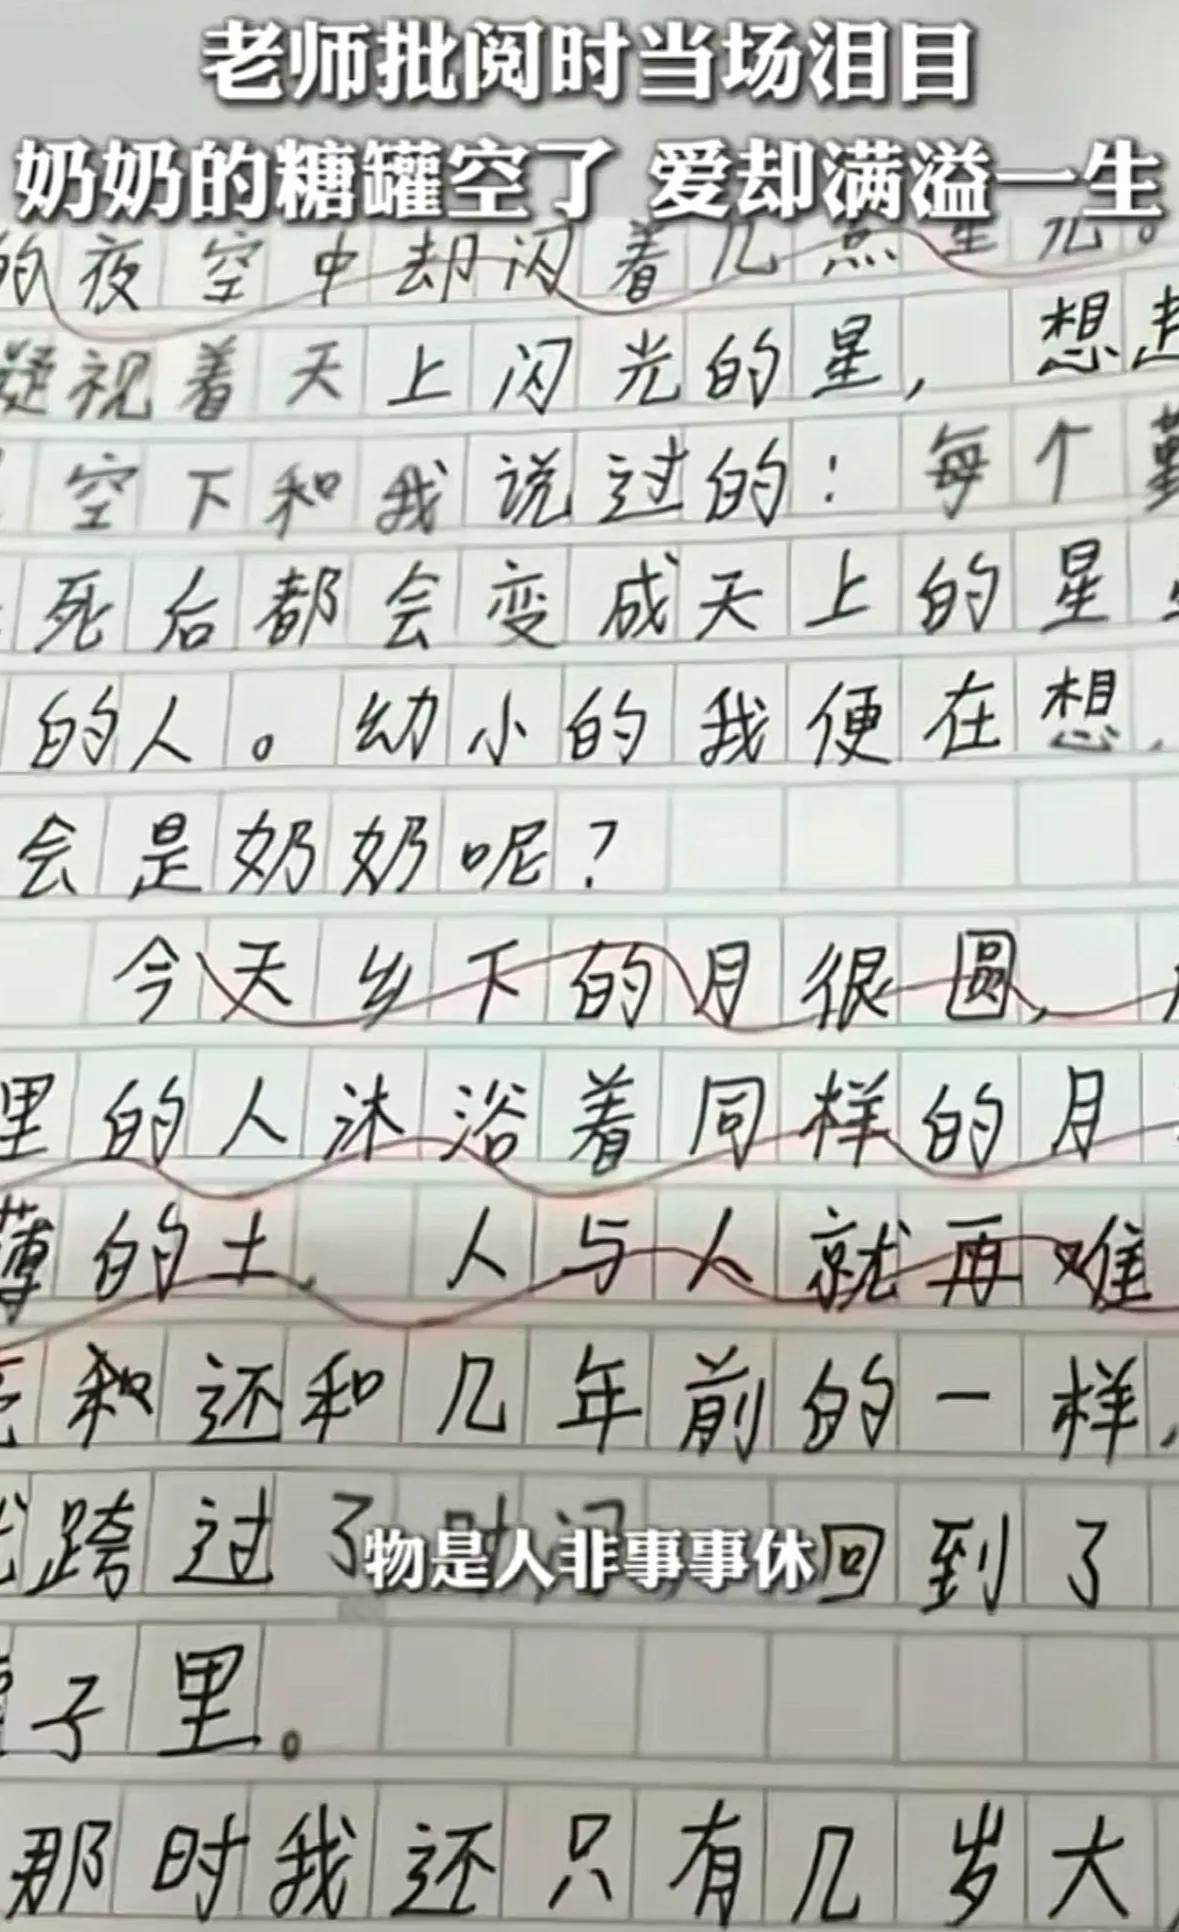 老师批阅时当场泪目
奶奶的糖罐空了 爱却满溢一生
的夜空中却闪着几点星光。
凝视着天上闪光的星, 想起
空下和我说过的:每个勤
死后都会变成天上的星星
的人。幼小的我便在想,
会是奶奶呢?
今天乡下的月很圆,
里的人沐浴着同样的月
薄的土, 人与人就再难
和还和几年前的一样,
跨过了时间, 回到了
物是人非事事休
子里。
那时我还只有几岁大,